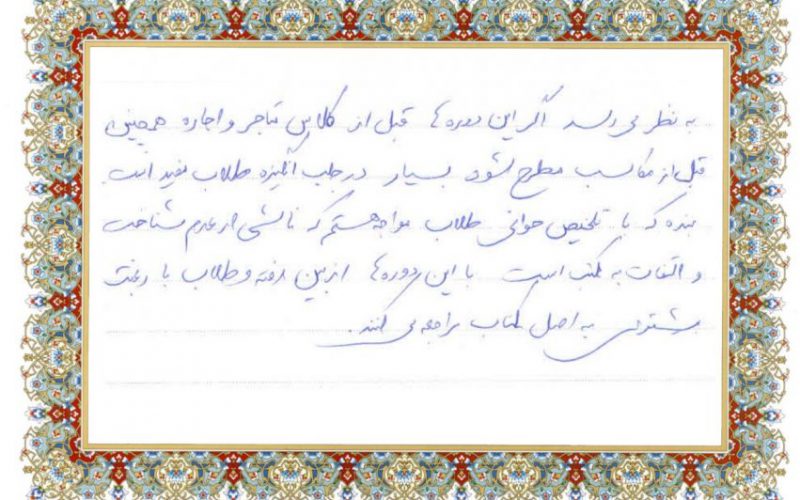 به نظر می رسد اگر این دوره ها قبل از کلاس متاجر و اجاره همچنین
قبل از مکاسب مطرح شود بسیار در جلب انگیزه طلاب مفید است
بنده که با تلخیص خوانی طلاب مواجه هستم که ناشی از عدم شناخت
و التفات به کتب است با این دوره ها از بین رفته و طلاب با رغبت
بیشتری به اصل کتاب مراجعه می کنند.